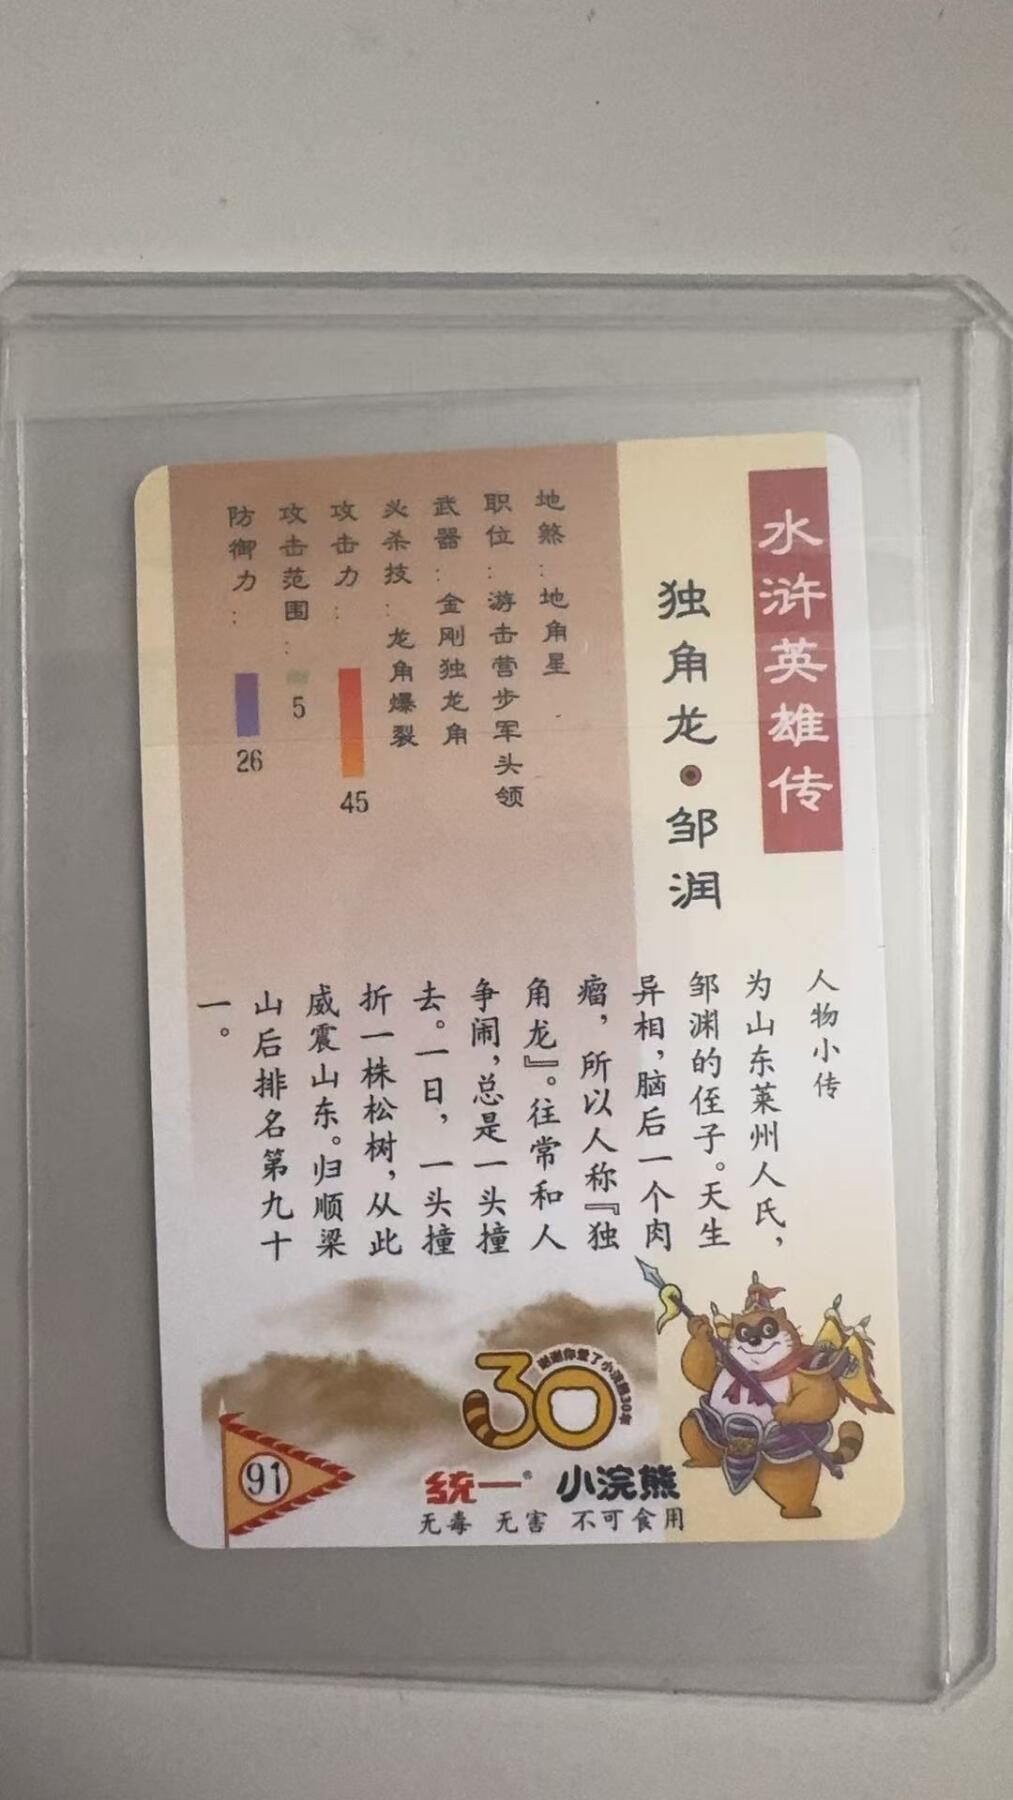 水浒英雄传
独角龙·邹润
地煞：地角星
职位：游击营步军头领
武器：金刚独龙角
必杀技：龙角爆裂
攻击力：45
攻击范围：5
防御力：26
人物小传
为山东莱州人氏，
邹渊的侄子。天生
异相，脑后一个肉
瘤，所以人称『独
角龙』。往常和人
争闹，总是一头撞
去。一日，一头撞
折一株松树，从此
威震山东。归顺梁
山后排名第九十
一。
30
谢谢你爱了小浣熊30年
统一® 小浣熊
无毒 无害 不可食用
91